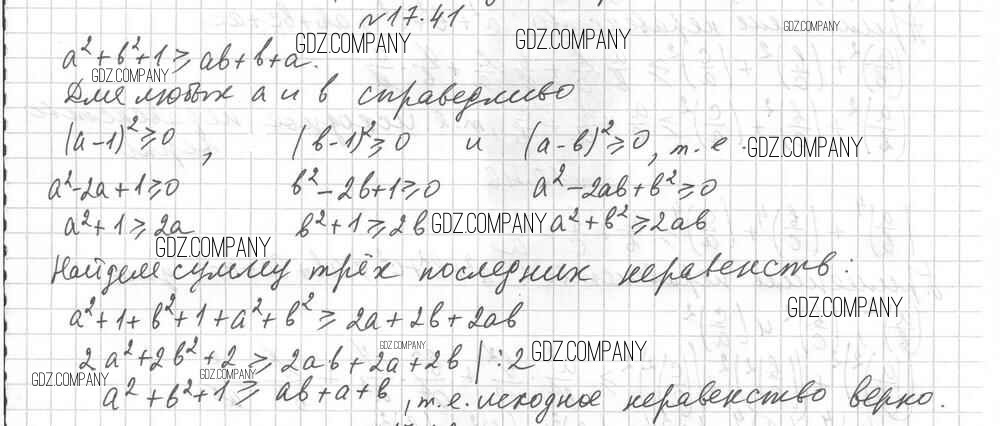 №17.41
a²+b²+1 ≥ ab+b+a. GDZ.COMPANY GDZ.COMPANY GDZ.COMPANY
GDZ.COMPANY
Для любых a и b справедливо
(a-1)² ≥ 0, (b-1)² ≥ 0 и (a-b)² ≥ 0, т.е. GDZ.COMPANY
a²-2a+1 ≥ 0 b²-2b+1 ≥ 0 a²-2ab+b² ≥ 0
a²+1 ≥ 2a b²+1 ≥ 2b GDZ.COMPANY a²+b² ≥ 2ab
GDZ.COMPANY
Найдем сумму трёх последних неравенств:
a²+1+b²+1+a²+b² ≥ 2a+2b+2ab GDZ.COMPANY
GDZ.COMPANY
2a²+2b²+2 ≥ 2ab+2a+2b |:2 GDZ.COMPANY
GDZ.COMPANY GDZ.COMPANY
a²+b²+1 ≥ ab+a+b, т.е. исходное неравенство верно.